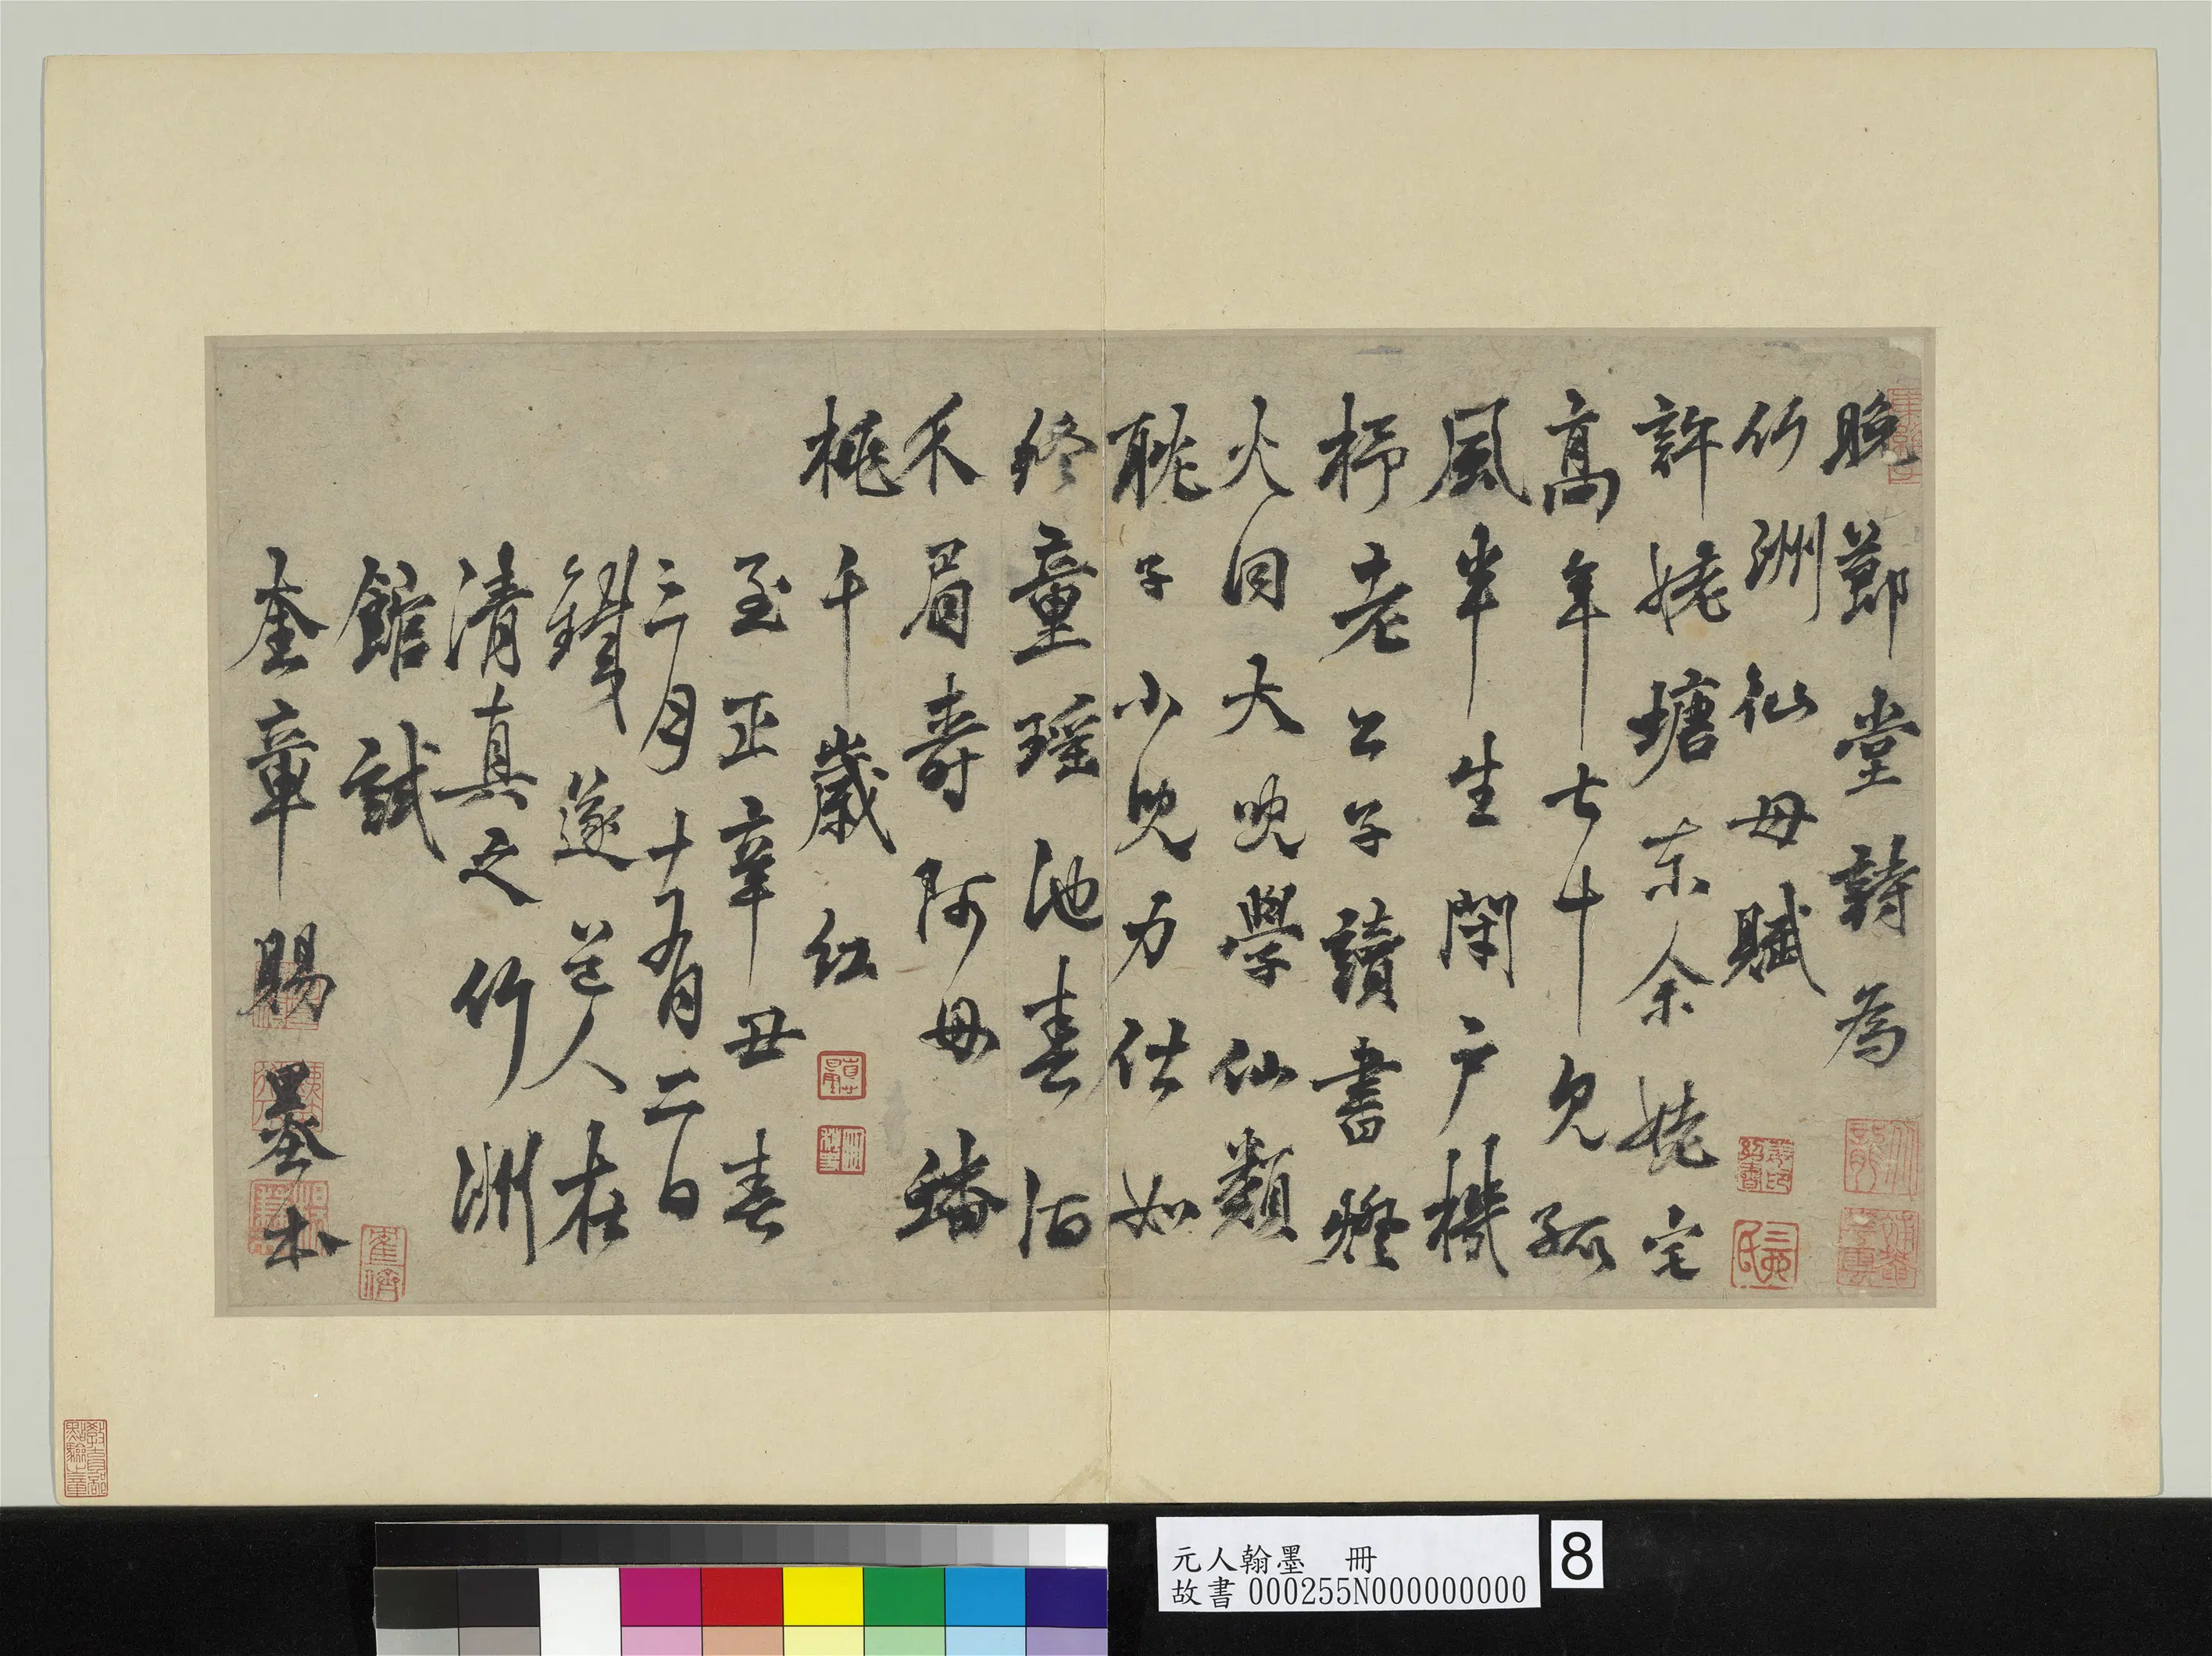 晚節堂詩為
竹洲仙母賦
許姥塘東余姥宅
高年七十見孤
風半生閉戶機
杼老公子讀書燈
火同大兒學仙類
耽子小兒力仕如
終童瑤池春酒
禾眉壽阿母蟠
桃千歲紅
至正辛丑春
三月十有二日
鐵篴道人在
清真之竹洲
館試
奎章賜墨
教育部點驗之章
元人翰墨 冊
故書000255N000000000
8